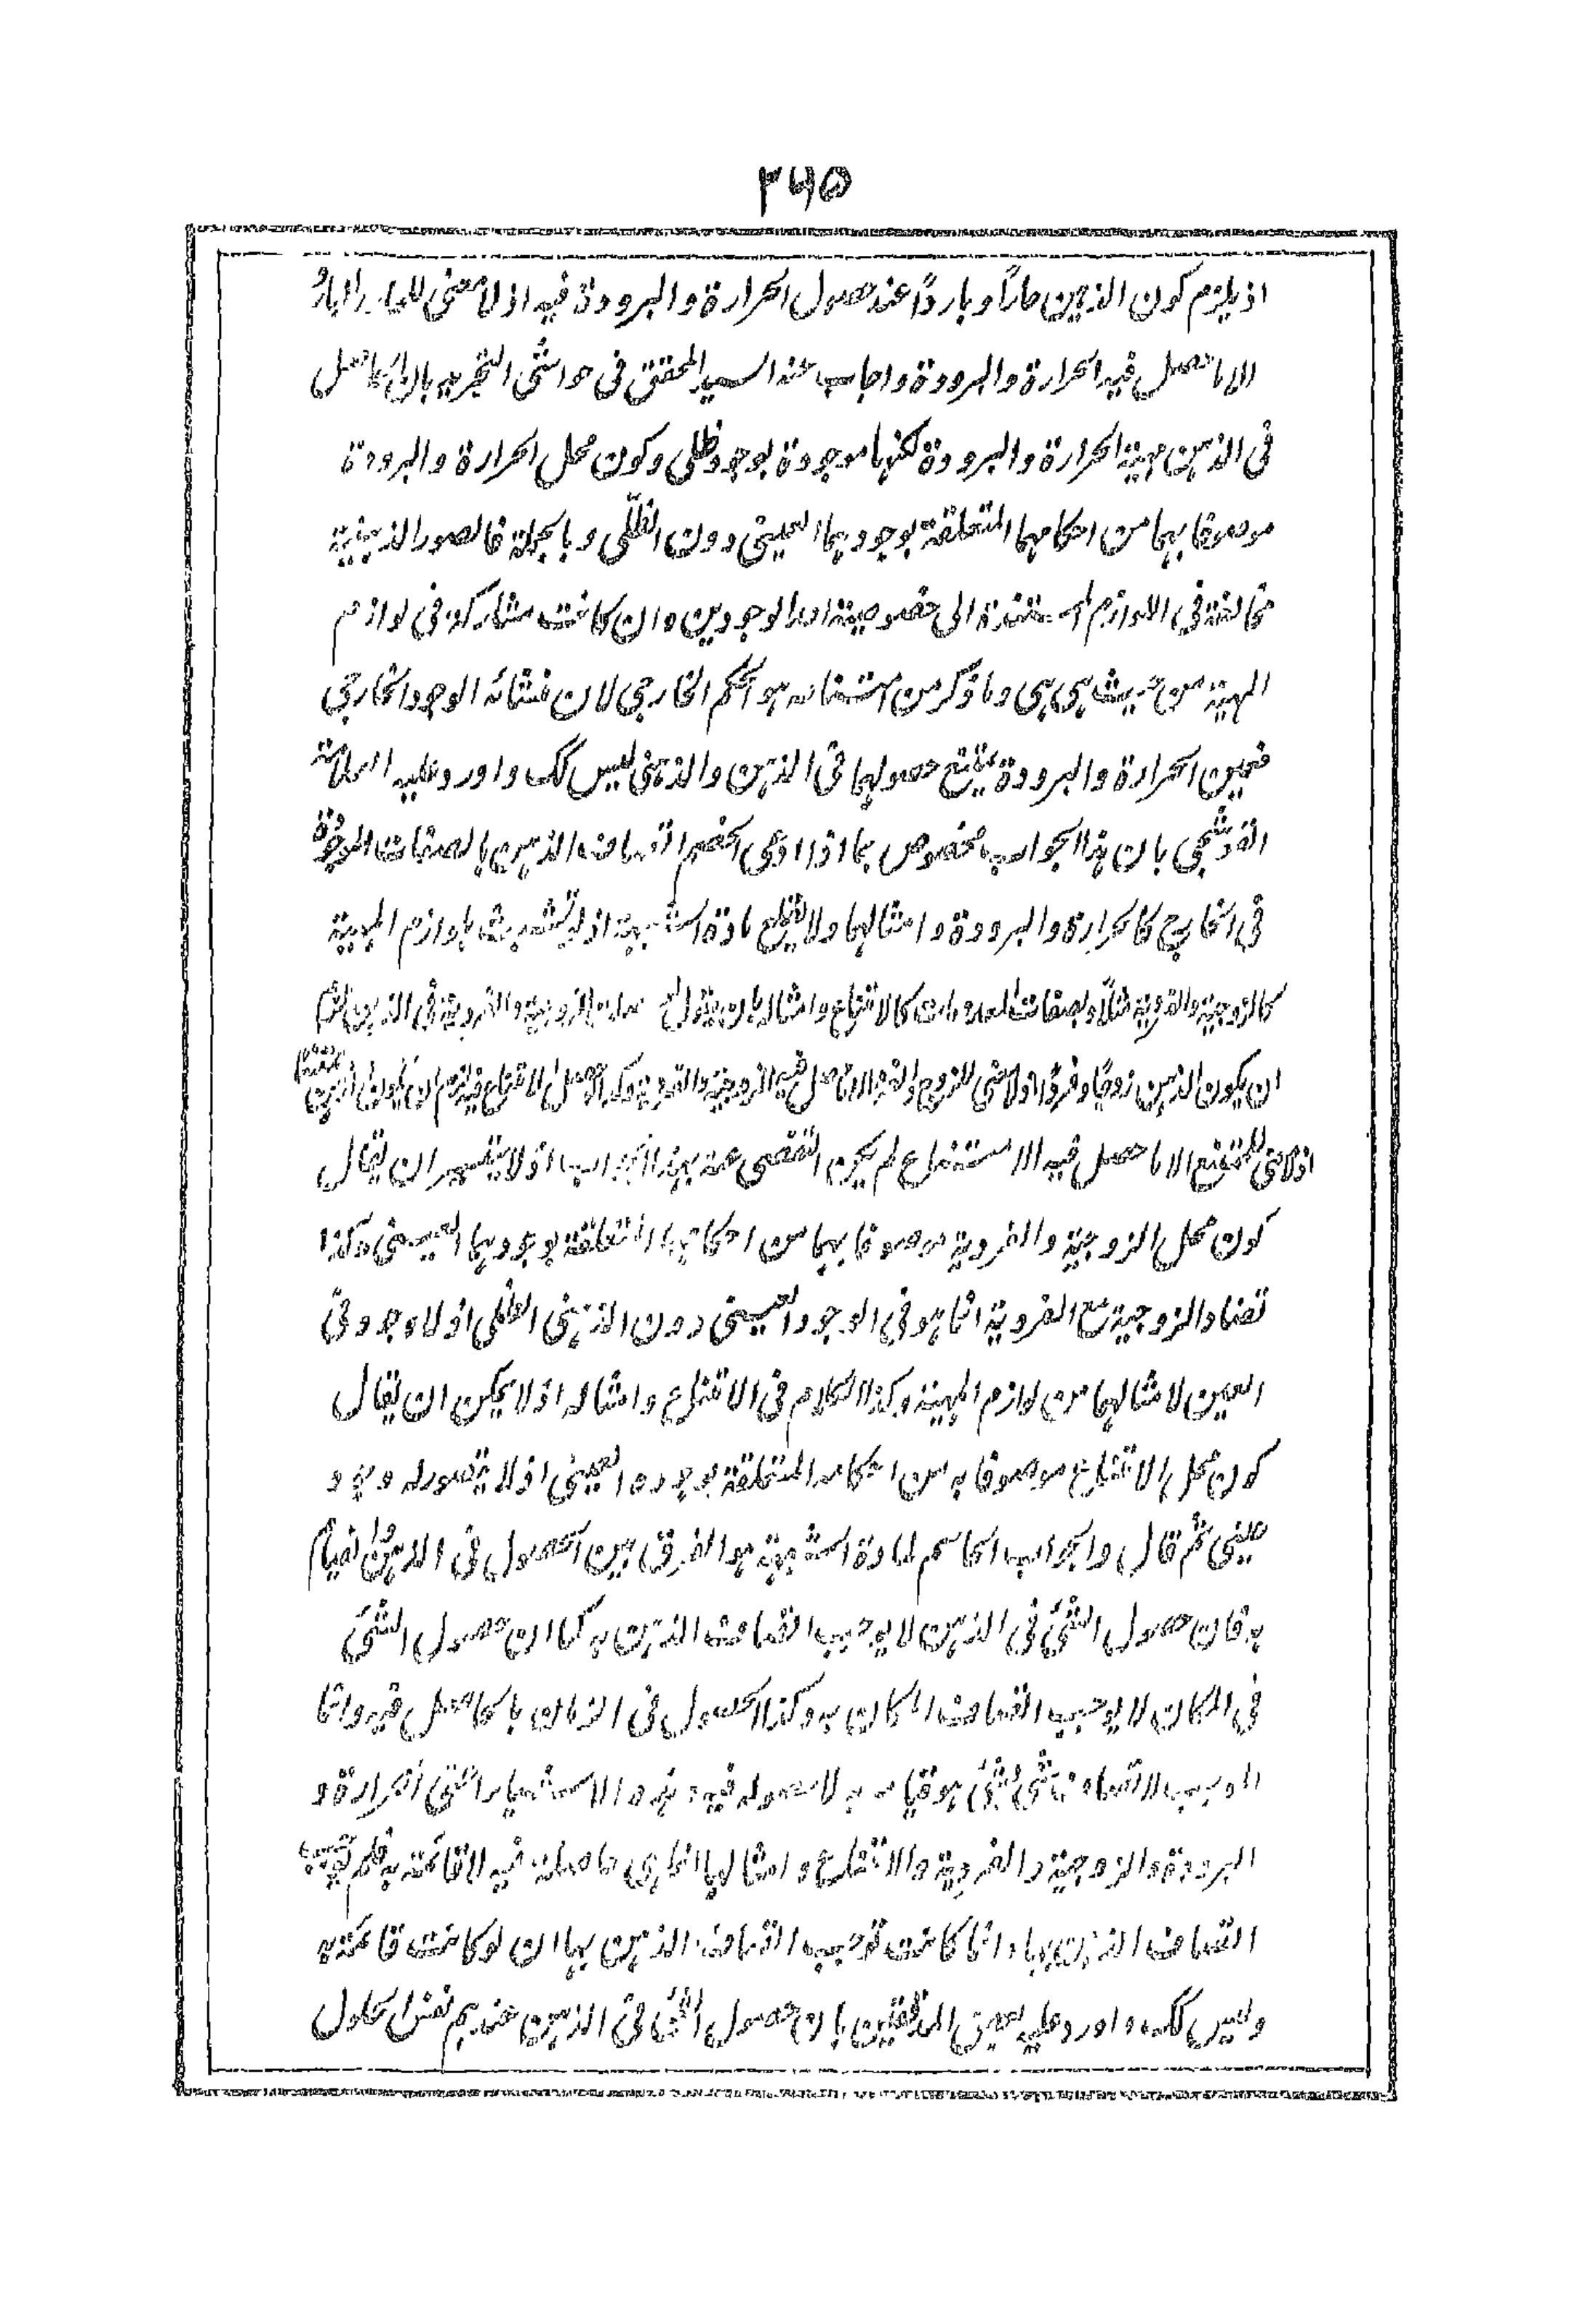 ٣٦٥
اذ يلزم كون الذهن حارًا وباردًا عند حصول الحرارة والبرودة فيه اذ لا معنى للحار والبارد
الا ما تحصل فيه الحرارة والبرودة واجاب عنه السيد المحقق فى حواشى التجريد بان الحاصل
فى الذهن مهية الحرارة والبرودة لكنها موجودة بوجود ظلى وكون محل الحرارة والبرودة
موصوفا بهما من احكامهما المتعلقة بوجودهما العينى دون الظلّى وبالجملة فالصور الذهنية
مخالفة فى اللوازم المستندة الى خصوصية احد الوجودين وان كانت مشاركة فى لوازم
المهية من حيث هى هى وما ذكر من هو الحكم الخارجى لان منشائه الوجود الخارجى
فعين الحرارة والبرودة يمتنع حصولهما فى الذهن والذهنى ليس كك واورد عليه العلامة
القوشجى بان هذا الجواب مخصوص بما اذا ادعى الخصم اتصاف الذهن بالصفات الموجودة
فى الخارج كالحرارة والبرودة وامثالهما ولا يقلع مادة الشبهة اذ لو تشبث بلوازم المهية
كالزوجية والفردية مثلاً وبصفات المعدومات كالامتناع وامثاله بان يقول الزوجية والفردية فى الذهن لزم
ان يكون الذهن زوجًا وفردًا اذ لا معنى للزوج والفرد الا ما حصل فيه الزوجية والفردية وكذا لو حصل الامتناع فيه لزم ان يكون الذهن ممتنعا
اذ لا معنى للممتنع الا ما حصل فيه الامتناع لم يكن التفصى عنه بهذا الجواب اذ لا يتيسر ان يقال
كون محل الزوجية والفردية موصوفا بهما من احكامهما المتعلقة بوجودهما العينى وكذا
تضاد الزوجية مع الفردية انما هو فى الوجود العينى دون الذهنى الظلى اذ لا وجود فى
العين لامثالهما من لوازم المهية وكذا الكلام فى الامتناع وامثاله اذ لا يمكن ان يقال
كون محل الامتناع موصوفا به من احكامه المتعلقة بوجوده العينى اذ لا يتصور له وجود
عينى ثم قال والجواب الحاسم لمادة الشبهة هو الفرق بين الحصول فى الذهن والقيام
به فان حصول الشئ فى الذهن لا يوجب اتصاف الذهن به كما ان حصول الشئ
فى المكان لا يوجب اتصاف المكان به وكذا الحصول فى الزمان بالحاصل فيه وانما
الموجب لاتصاف شئ بشئ هو قيامه به لا حصوله فيه وهذه الاشياء اعنى الحرارة و
البرودة والزوجية والفردية والامتناع وامثالها انما هى حاصلة فيه لا قائمة به فلم يوجب
اتصاف الذهن بها وانما كانت توجب اتصاف الذهن بها ان لو كانت قائمة به
وليس كك واورد عليه بعض المدققين بان حصول الشئ فى الذهن عندهم نفس الحلول